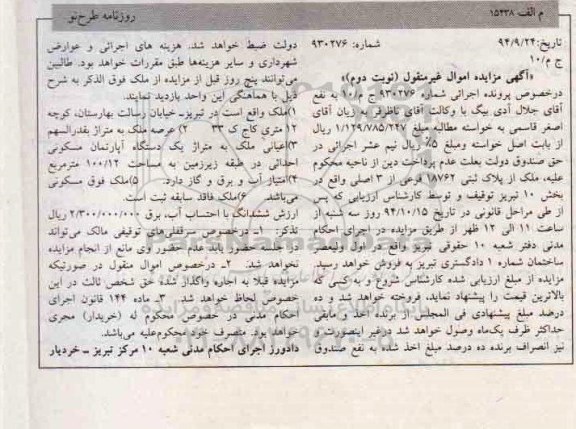 م الف ۱۵۴۳۸
روزنامه طرح‌نو
تاریخ: ۹۴/۹/۲۴ شماره: ۹۳۰۲۷۶
ج م/۱۰
«آگهی مزایده اموال غیرمنقول (نوبت دوم)»
درخصوص پرونده اجرائی شماره ۹۳۰۲۷۶ ج م/۱۰ به نفع
آقای جلال آدی بیگ با وکالت آقای باطرقی بر زیان آقای
اصغر قاسمی به خواسته مطالبه مبلغ ۱/۱۲۹/۷۸۵/۲۲۷ ریال
از بابت اصل خواسته ومبلغ ۵٪ ریال نیم عشر اجرائی در
حق صندوق دولت بعلت عدم پرداخت دین از ناحیه محکوم
علیه، ملک از پلاک ثبتی ۱۸۷۶۲ فرعی از ۳ اصلی واقع در
بخش ۱۰ تبریز توقیف و توسط کارشناس ارزیابی که پس
از طی مراحل قانونی در تاریخ ۹۴/۱۰/۱۵ روز سه شنبه از
ساعت ۱۱ الی ۱۲ ظهر از طریق مزایده در اجرای احکام
مدنی دفتر شعبه ۱۰ حقوقی تبریز واقع در اول ولیعصر
ساختمان شماره ۱ دادگستری تبریز به فروش خواهد رسید.
مزایده از مبلغ ارزیابی شده کارشناس شروع و به کسی که
بالاترین قیمت را پیشنهاد نماید، فروخته خواهد شد و ده
درصد مبلغ پیشنهادی فی المجلس از برنده اخذ و مابقی
حداکثر ظرف یک‌ماه وصول خواهد شد درغیر اینصورت و
نیز انصراف برنده ده درصد مبلغ اخذ شده به نفع صندوق
دولت ضبط خواهد شد. هزینه های اجرائی و عوارض
شهرداری و سایر هزینه‌ها طبق مقررات خواهد بود. طالبین
می‌توانند پنج روز قبل از مزایده از ملک فوق الذکر به شرح
ذیل با هماهنگی این واحد بازدید نمایند.
۱)ملک واقع است در تبریزـ خیابان رسالت بهارستان، کوچه
۱۲ متری کاج ک ۳۳ ۲) عرصه ملک به متراژ بقدرالسهم
۳)اعیانی ملک به متراژ یک دستگاه آپارتمان مسکونی
احداثی در طبقه زیرزمین به مساحت ۱۰۰/۱۲ مترمربع
۴)امتیاز آب و برق و گاز دارد. ۵)ملک فوق مسکونی
می‌باشد. ۶)ملک فاقد سابقه ثبت است.
ارزش ششدانگ با احتساب آب، برق ۲/۳۰۰/۰۰۰/۰۰۰ ریال
تذکر: ۱ـ درخصوص سرقفلی‌های توقیفی مالک می‌تواند
در جلسه حضور یابد عدم حضور وی مانع از انجام مزایده
نخواهد شد. ۲ـ درخصوص اموال منقول در صورتیکه
مزایده قبلا به اجاره واگذار شده حق شخص ثالث در این
خصوص لحاظ خواهد شد. ۳ـ ماده ۱۴۴ قانون اجرای
احکام مدنی در خصوص محکوم له (خریدار) مجری
خواهد بود. متصرف خود محکوم‌علیه می‌باشد.
دادورز اجرای احکام مدنی شعبه ۱۰ مرکز تبریز ـ خردیار